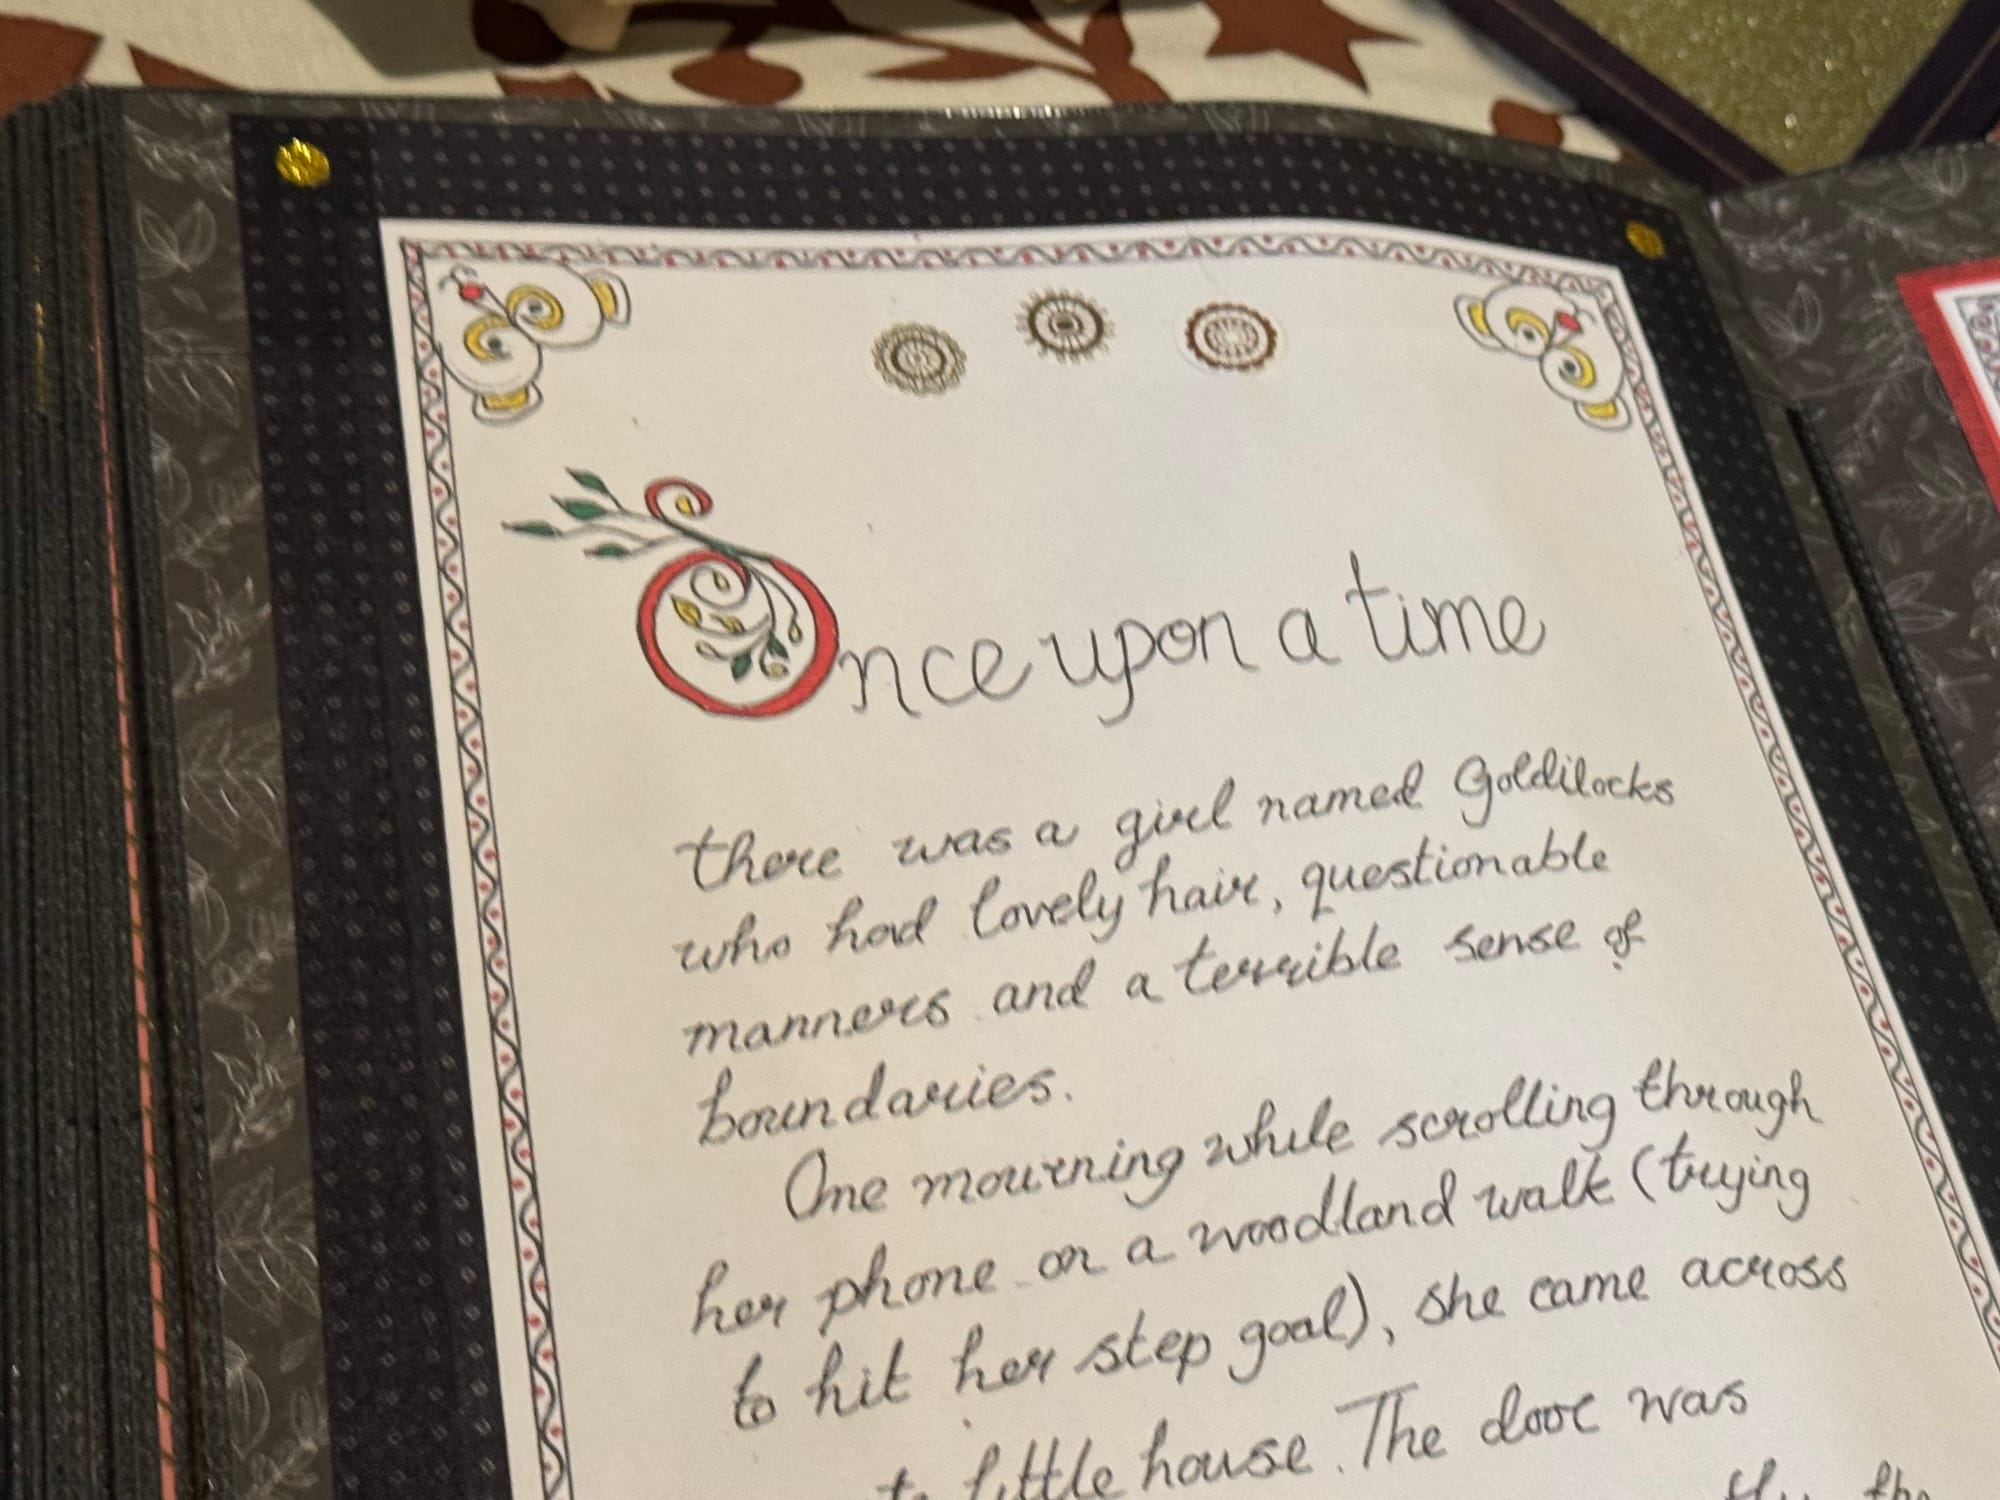 Once upon a time
there was a girl named Goldilocks
who had lovely hair, questionable
manners and a terrible sense of
boundaries.
One mourning while scrolling through
her phone on a woodland walk (trying
to hit her step goal), she came across
little house. The door was
the